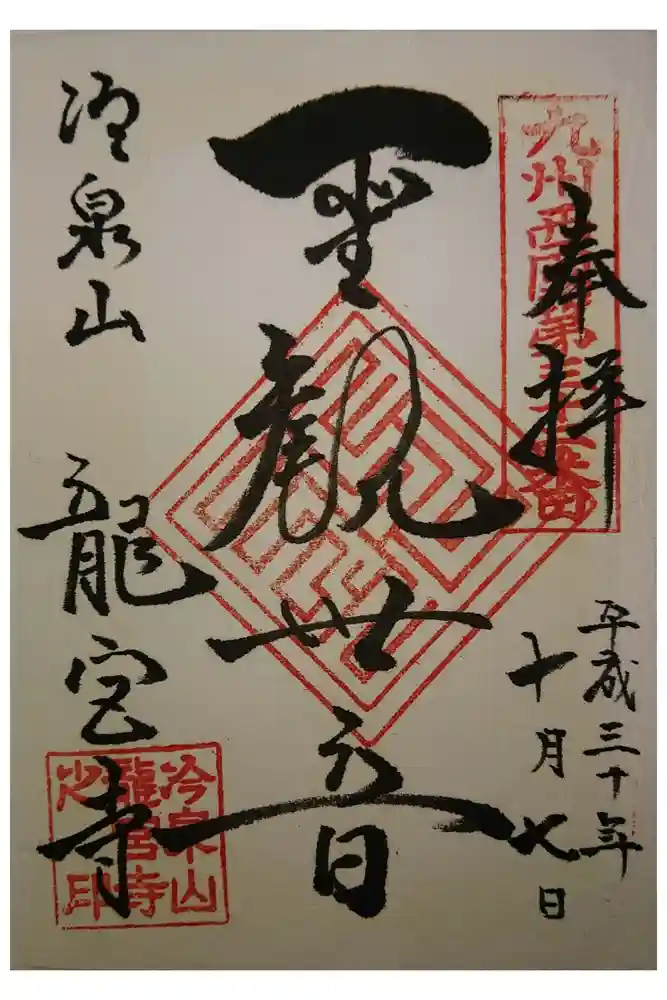 奉拝
九州西国第三十二番
平成三十年
十月七日
聖観世音
冷泉山 龍宮寺
冷泉山
龍宮寺
之印